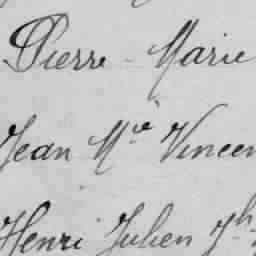 Pierre Marie
Jean Mie Vincen
Henri Julien Th